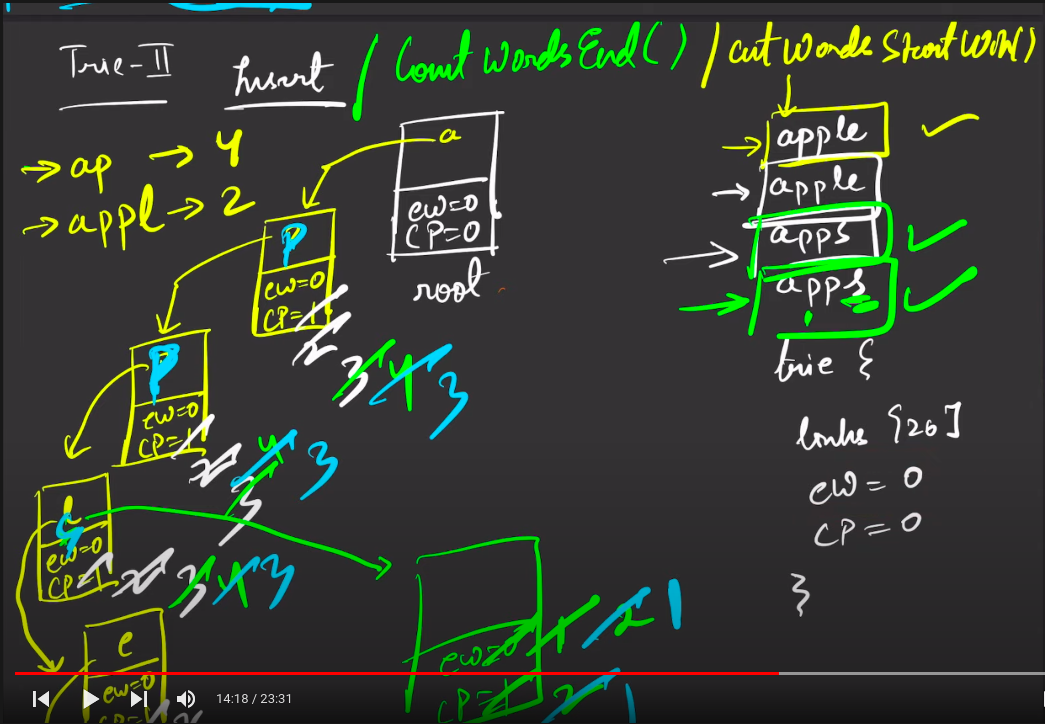 Trie-II
Insert / Count Words End() / Cnt Words Start With()
→ ap → 4
→ appl → 2
a
ew=0
CP=0
root
p
ew=0
CP=1
2
3
4
3
p
ew=0
CP=1
2
3
4
3
l
s
ew=0
CP=1
2
3
4
3
e
ew=0
ew=0
1
2
1
CP=1
2
1
→ apple ✓
→ apple
→ apps ✓
→ apps ✓
trie {
links [26]
ew = 0
CP = 0
}
14:18 / 23:31